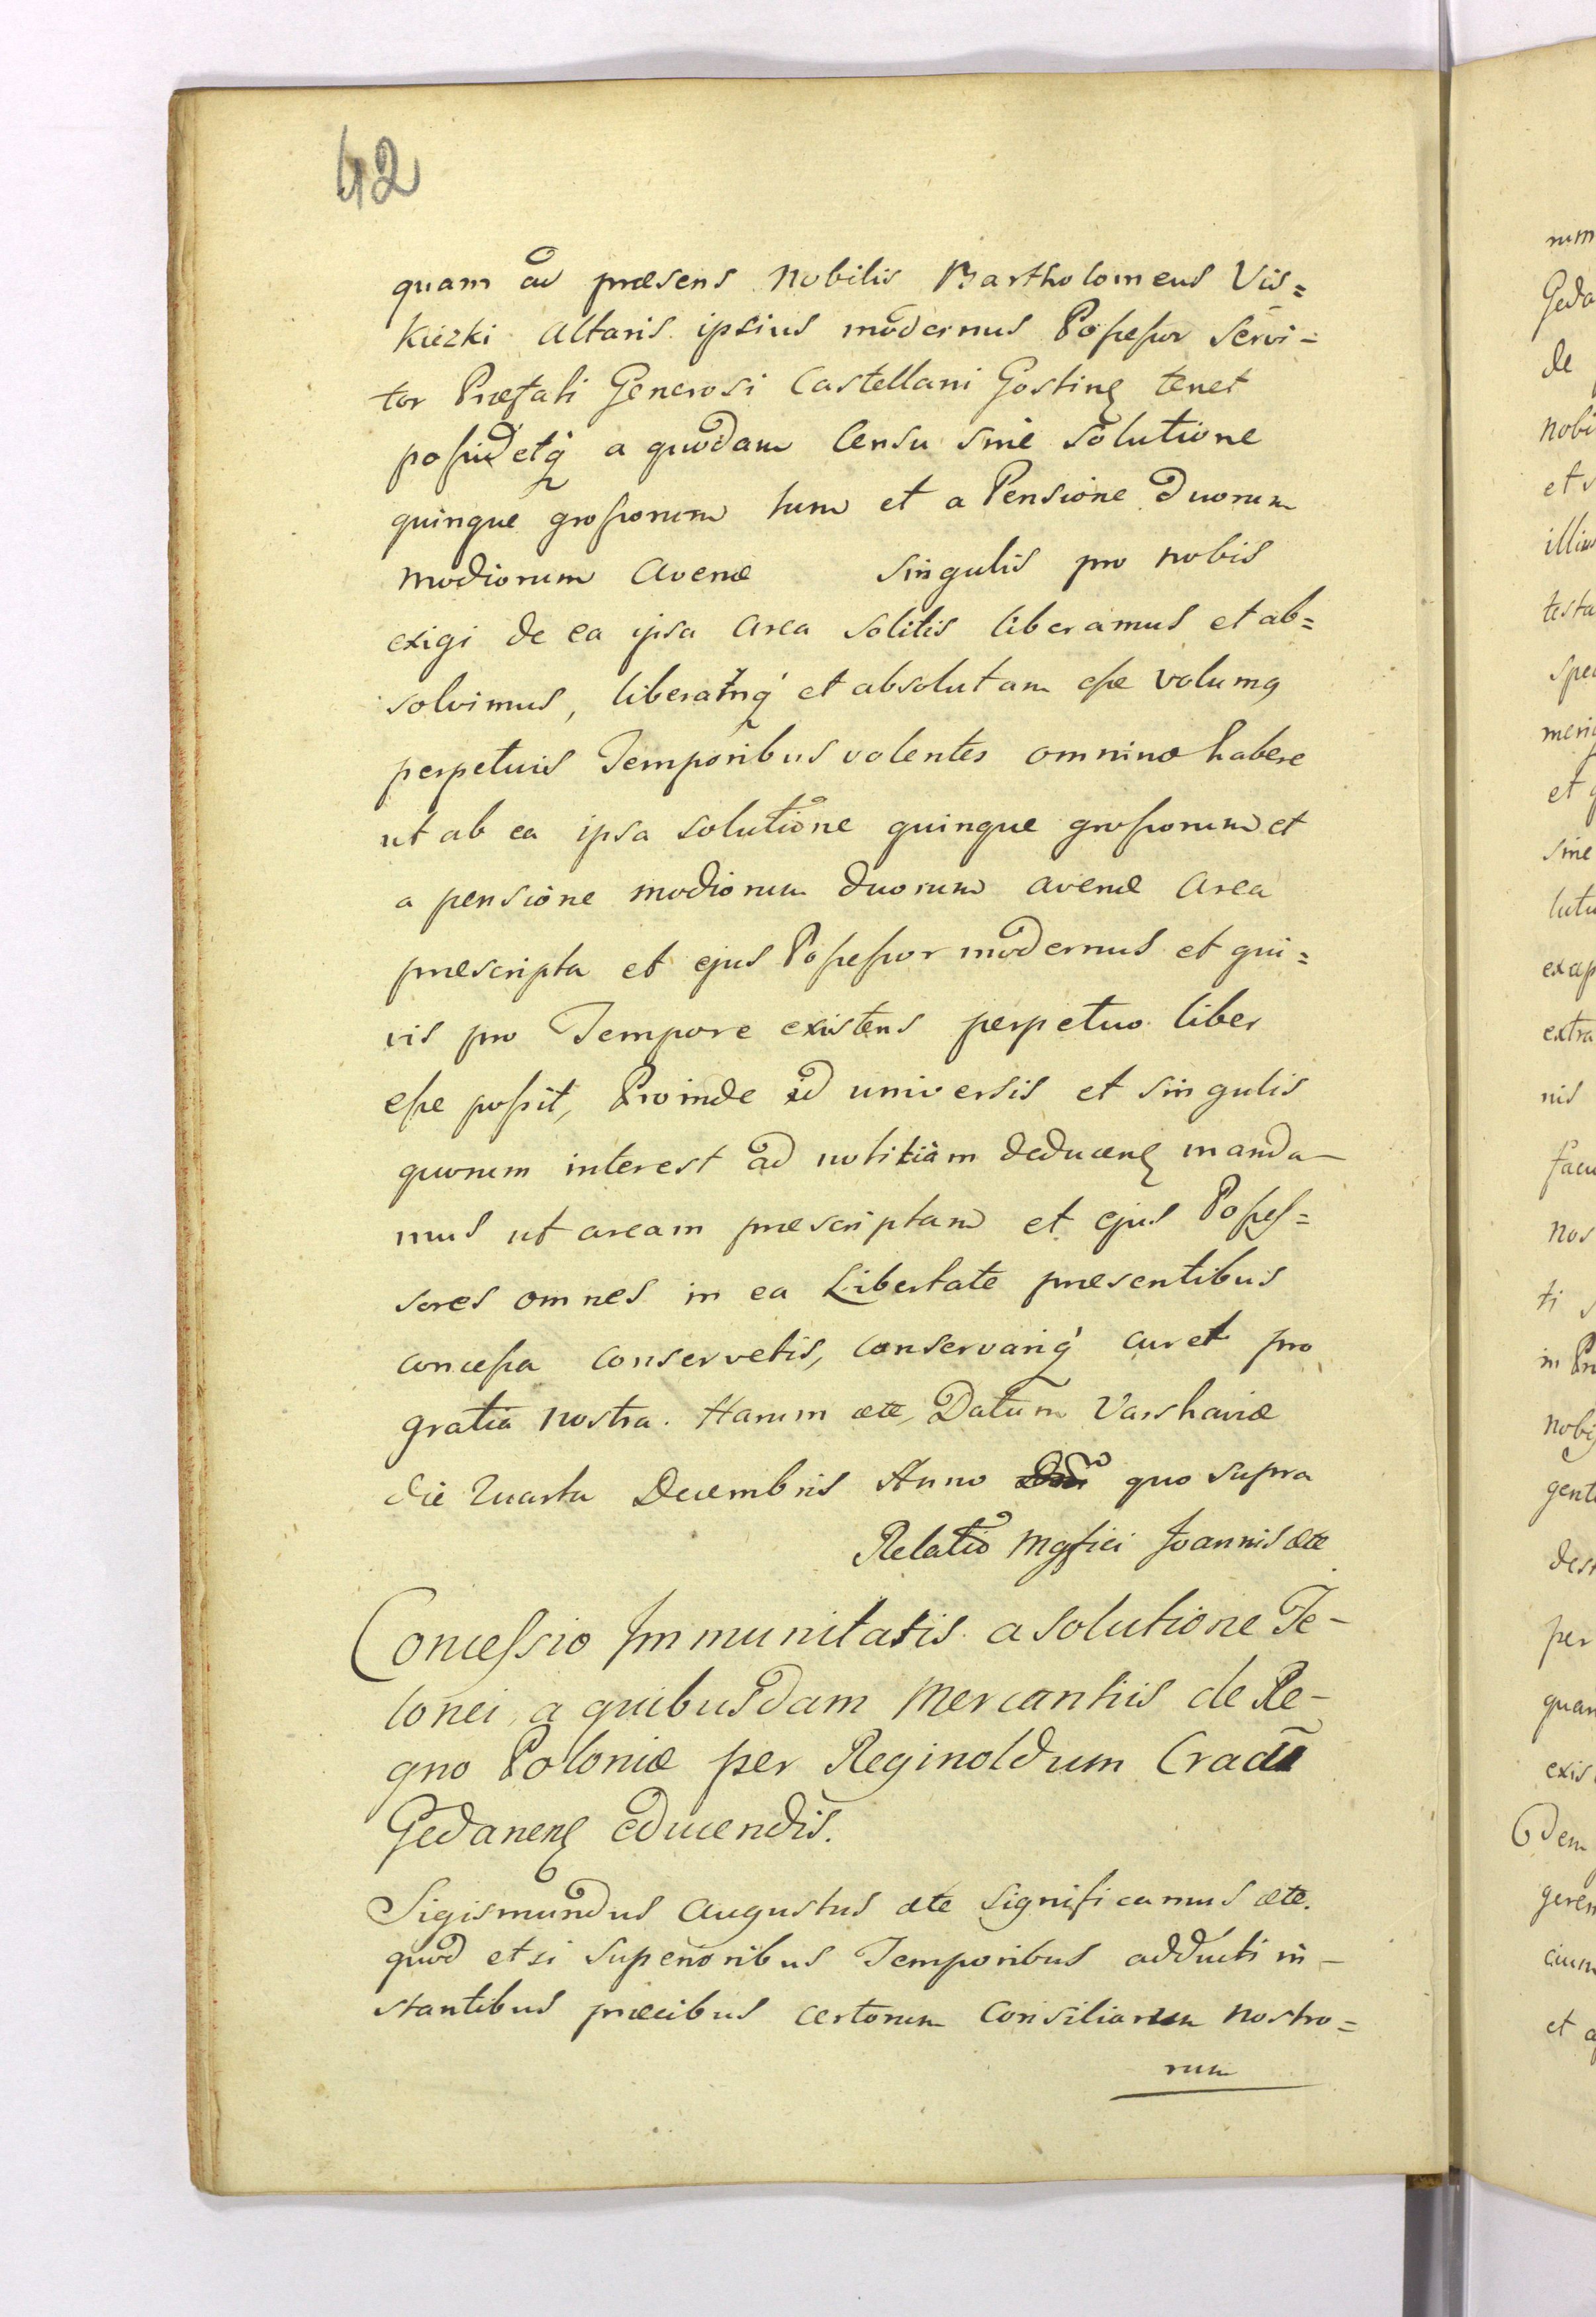 42
quam ad præsens Nobilis Bartholomeus Vis=
kiczki Altaris ipsius modernus Poſseſsor Servi=
tor Præfati Generosi Castellani Gostinę tenet
poſsidetq́ a quodam Censu sive Solutione
quinque groſsorum tum et a Pensione duorum
modiorum Avenæ singulis pro nobis
exigi de ea ipsa Area solitis liberamus et ab=
solvimus, liberatmq́ et absolutam eſse volumq
perpetuis Temporibus volentes omnino habere
ut ab ea ipsa solutione quinque groſsorum et
a pensione modiorum duorum avenæ Area
præscripta et ejus Poſseſsor modernus et qui=
vis pro Tempore existens perpetuo liber
eſse poſsit, Proinde id universis et singulis
quorum interest ad notitiam deducenę manda-
mus ut aream præscriptam et ejus Poſseſ=
sores omnes in ea Libertate præsentibus
conceſsa conservetis, conservariq́ curet pro
gratia nostra. Harum ætc, Datum Varshaviæ
die Quarta Decembris Anno quo supra
Relatio Mgfici Joannis ætc
Conceſsio Immunitatis a solutione Te-
lonei a quibusdam Mercantiis de Re-
gno Poloniæ per Reginoldum
Gedanenę educendis.
Sigismundus Augustus ætc significamus ætc.
quod etsi superioribus Temporibus adducti in-
stantibus præcibus certorum Consiliarum nostro=
rum